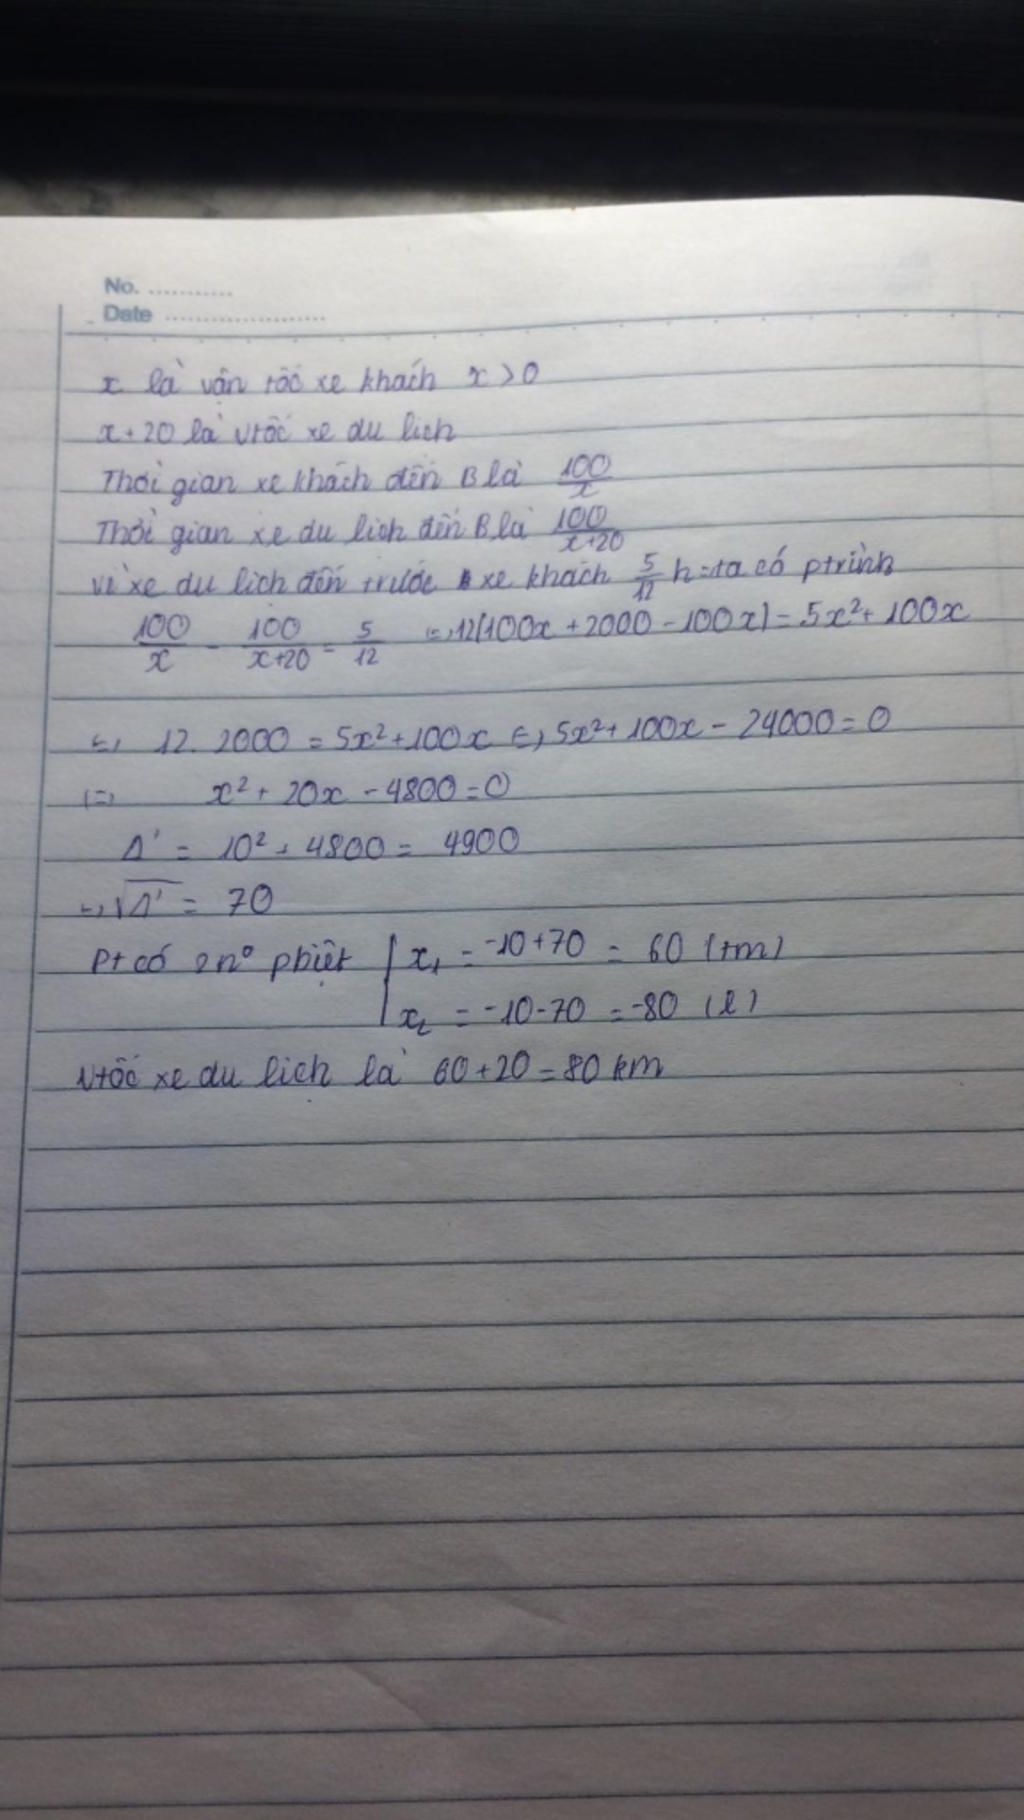 No. ...........
Date .....................
x là vận tốc xe khách x > 0
x+20 là vtốc xe du lich
Thời gian xe khách đến B là 100/x
Thời gian xe du lich đến B là 100/x+20
vì xe du lich đến trước xe khách 5/12 h => ta có ptrình
100/x - 100/x+20 = 5/12 <=> 12(100x + 2000 - 100x) = 5x² + 100x
<=> 12. 2000 = 5x² + 100x <=> 5x² + 100x - 24000 = 0
<=> x² + 20x - 4800 = 0
Δ' = 10² + 4800 = 4900
=> √Δ' = 70
Pt có 2 n⁰ pbiệt x₁ = -10+70 = 60 (tm)
x₂ = -10-70 = -80 (l)
Vtốc xe du lich là 60+20 = 80 km